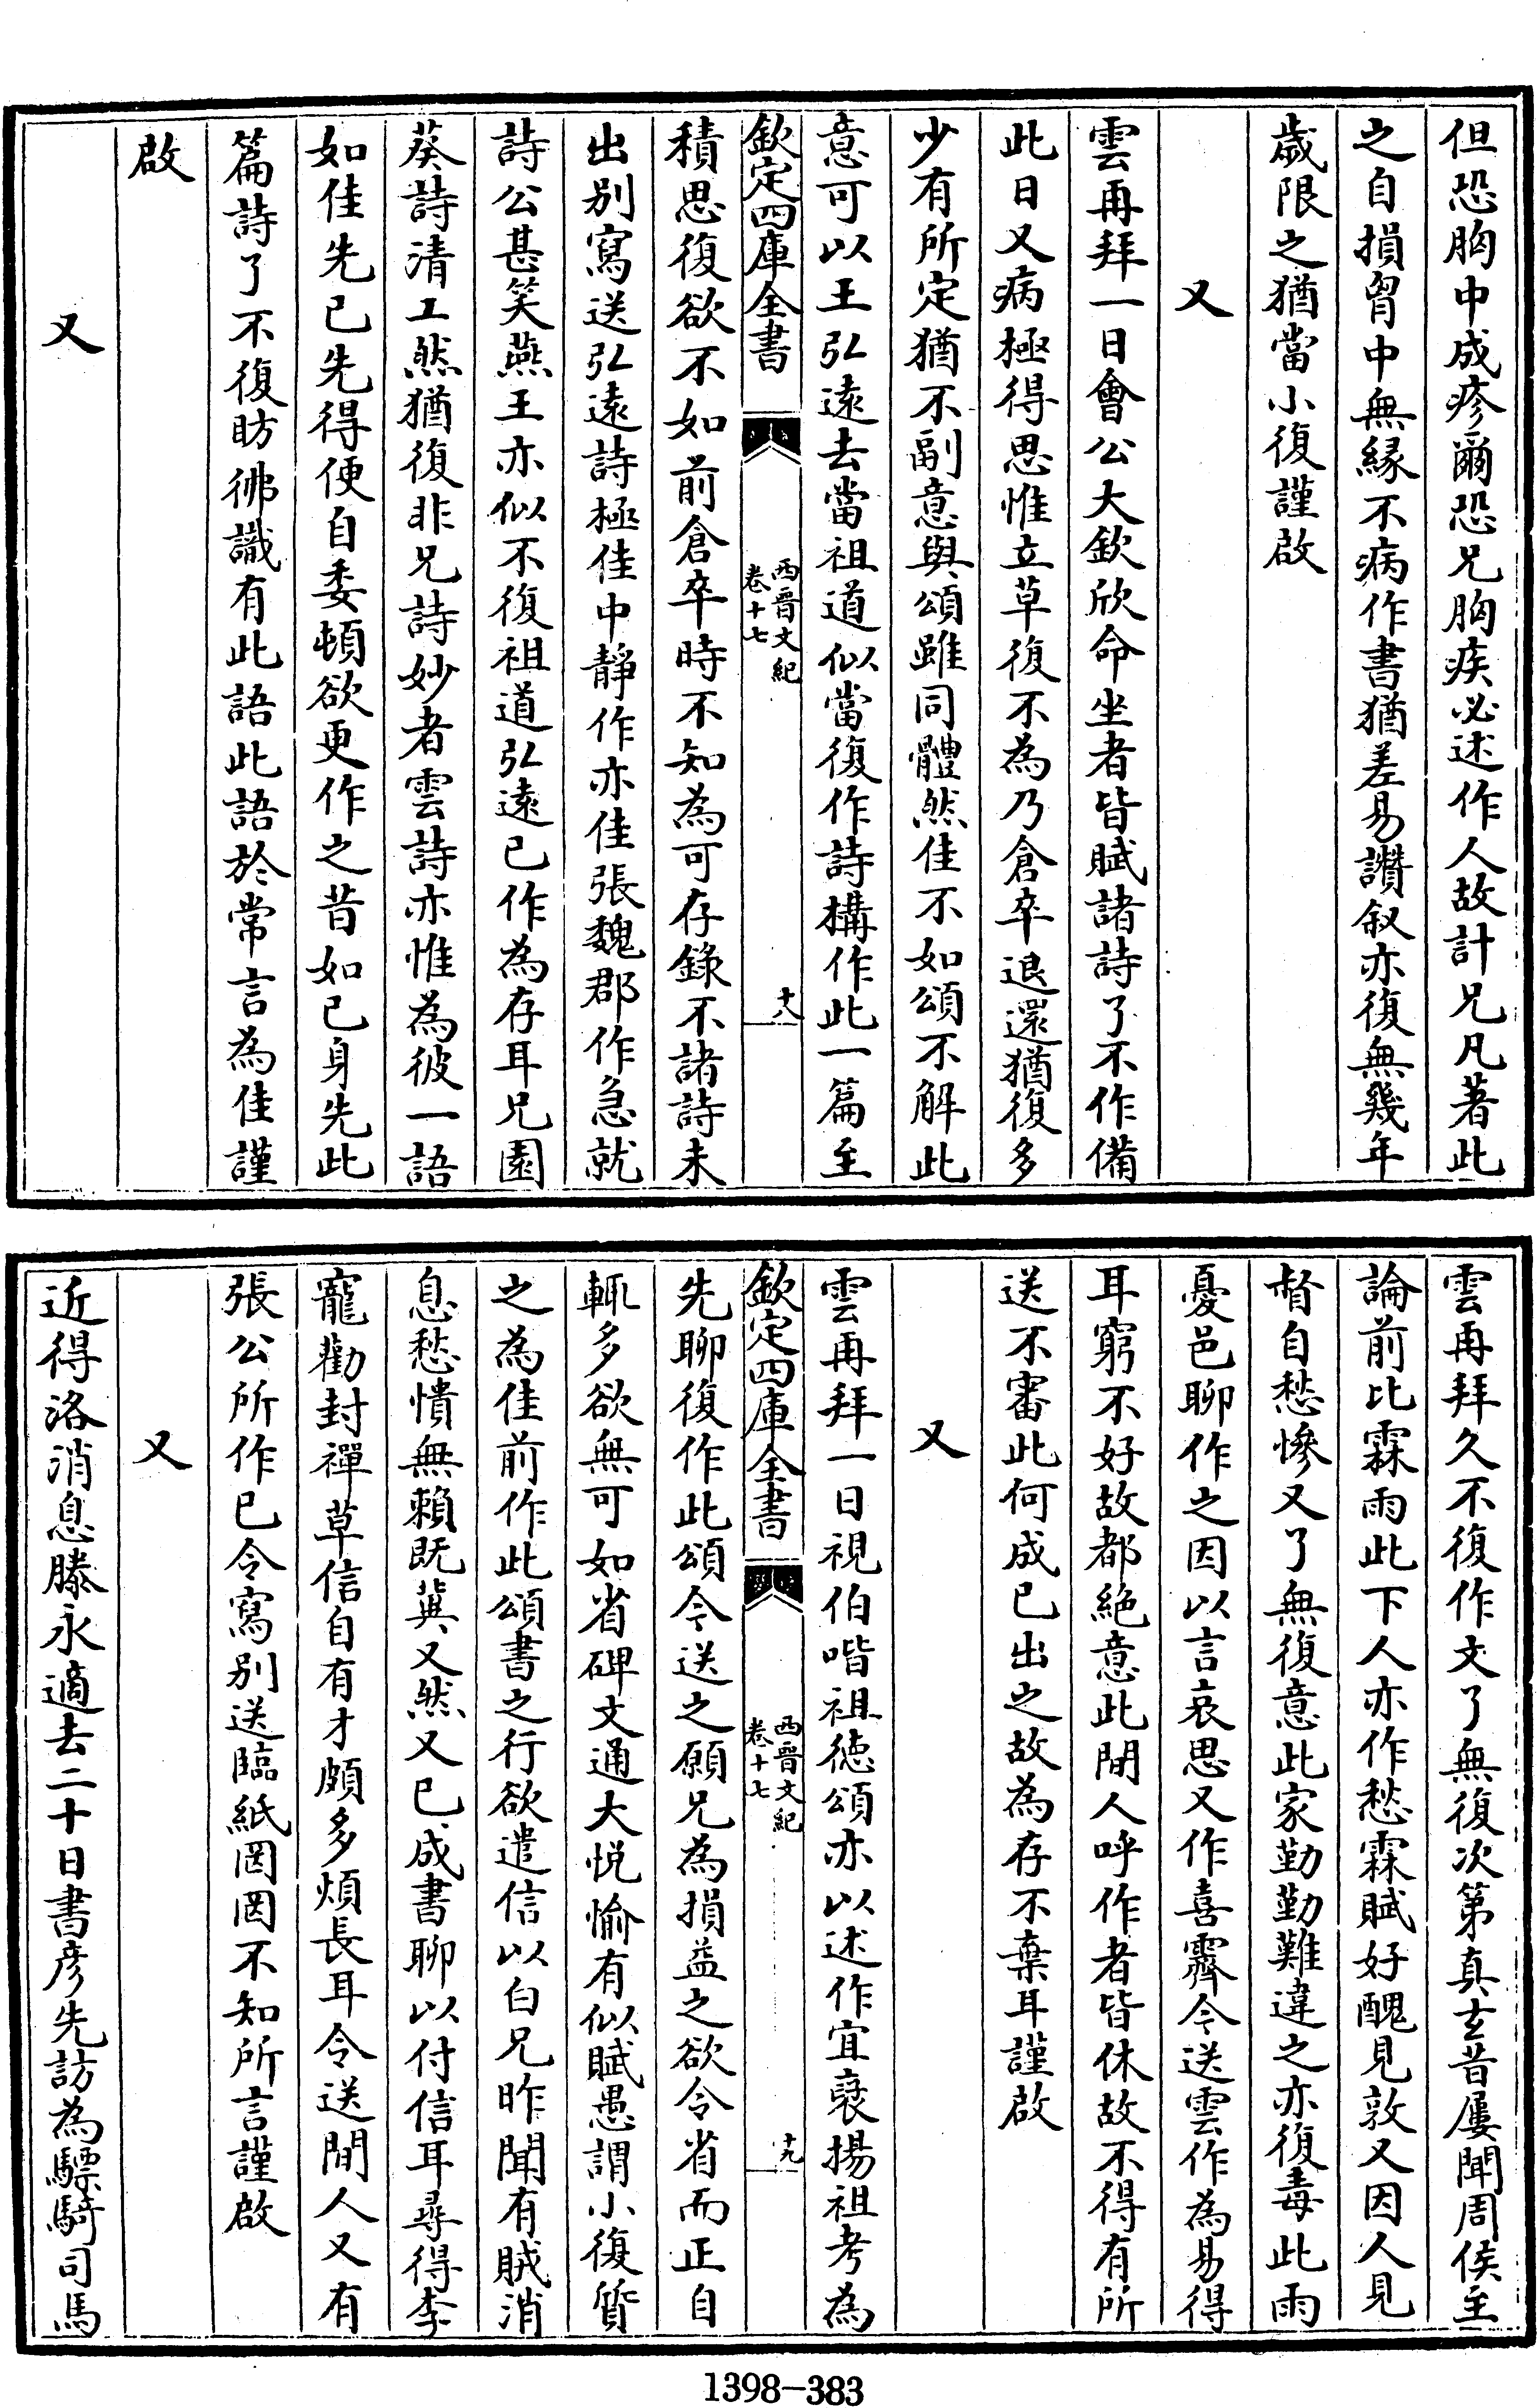 但恐胸中成疹爾恐兄胸疾必述作人故計兄凡著此
之自損胷中無緣不病作書猶差易讚叙亦復無幾年
歲限之猶當小復謹啟
又
雲再拜一日會公大欽欣命坐者皆賦諸詩了不作備
此日又病極得思惟立草復不為乃倉卒退還猶復多
少有所定猶不副意與頌雖同體然佳不如頌不解此
意可以王弘遠去當祖道似當復作詩構作此一篇至
欽定四庫全書
西晉文紀
卷十七
十八
積思復欲不如前倉卒時不知為可存錄不諸詩未
出別寫送弘遠詩極佳中靜作亦佳張魏郡作急就
詩公甚笑燕王亦似不復祖道弘遠已作為存耳兄園
葵詩清工然猶復非兄詩妙者雲詩亦惟為彼一語
如佳先已先得便自委頓欲更作之昔如已身先此
篇詩了不復昉彿識有此語此語於常言為佳謹
啟
又
雲再拜久不復作文了無復次第真玄昔屢聞周侯至
論前比霖雨此下人亦作愁霖賦好醜見敦又因人見
督自愁慘又了無復意此家勤勤難違之亦復毒此雨
憂邑聊作之因以言哀思又作喜霽今送雲作為易得
耳窮不好故都絕意此間人呼作者皆休故不得有所
送不審此何成已出之故為存不棄耳謹啟
又
雲再拜一日視伯喈祖徳頌亦以述作宜襃揚祖考為
欽定四庫全書
西晉文紀
卷十七
十九
先聊復作此頌今送之願兄為損益之欲令省而正自
輒多欲無可如省碑文通大悅愉有似賦愚謂小復質
之為佳前作此頌書之行欲遣信以白兄昨聞有賊消
息愁憒無賴既冀又然又已成書聊以付信耳尋得李
寵勸封禪草信自有才頗多煩長耳令送間人又有
張公所作已令寫別送臨紙罔罔不知所言謹啟
又
近得洛消息滕永適去二十日書彦先訪為驃騎司馬
1398-383